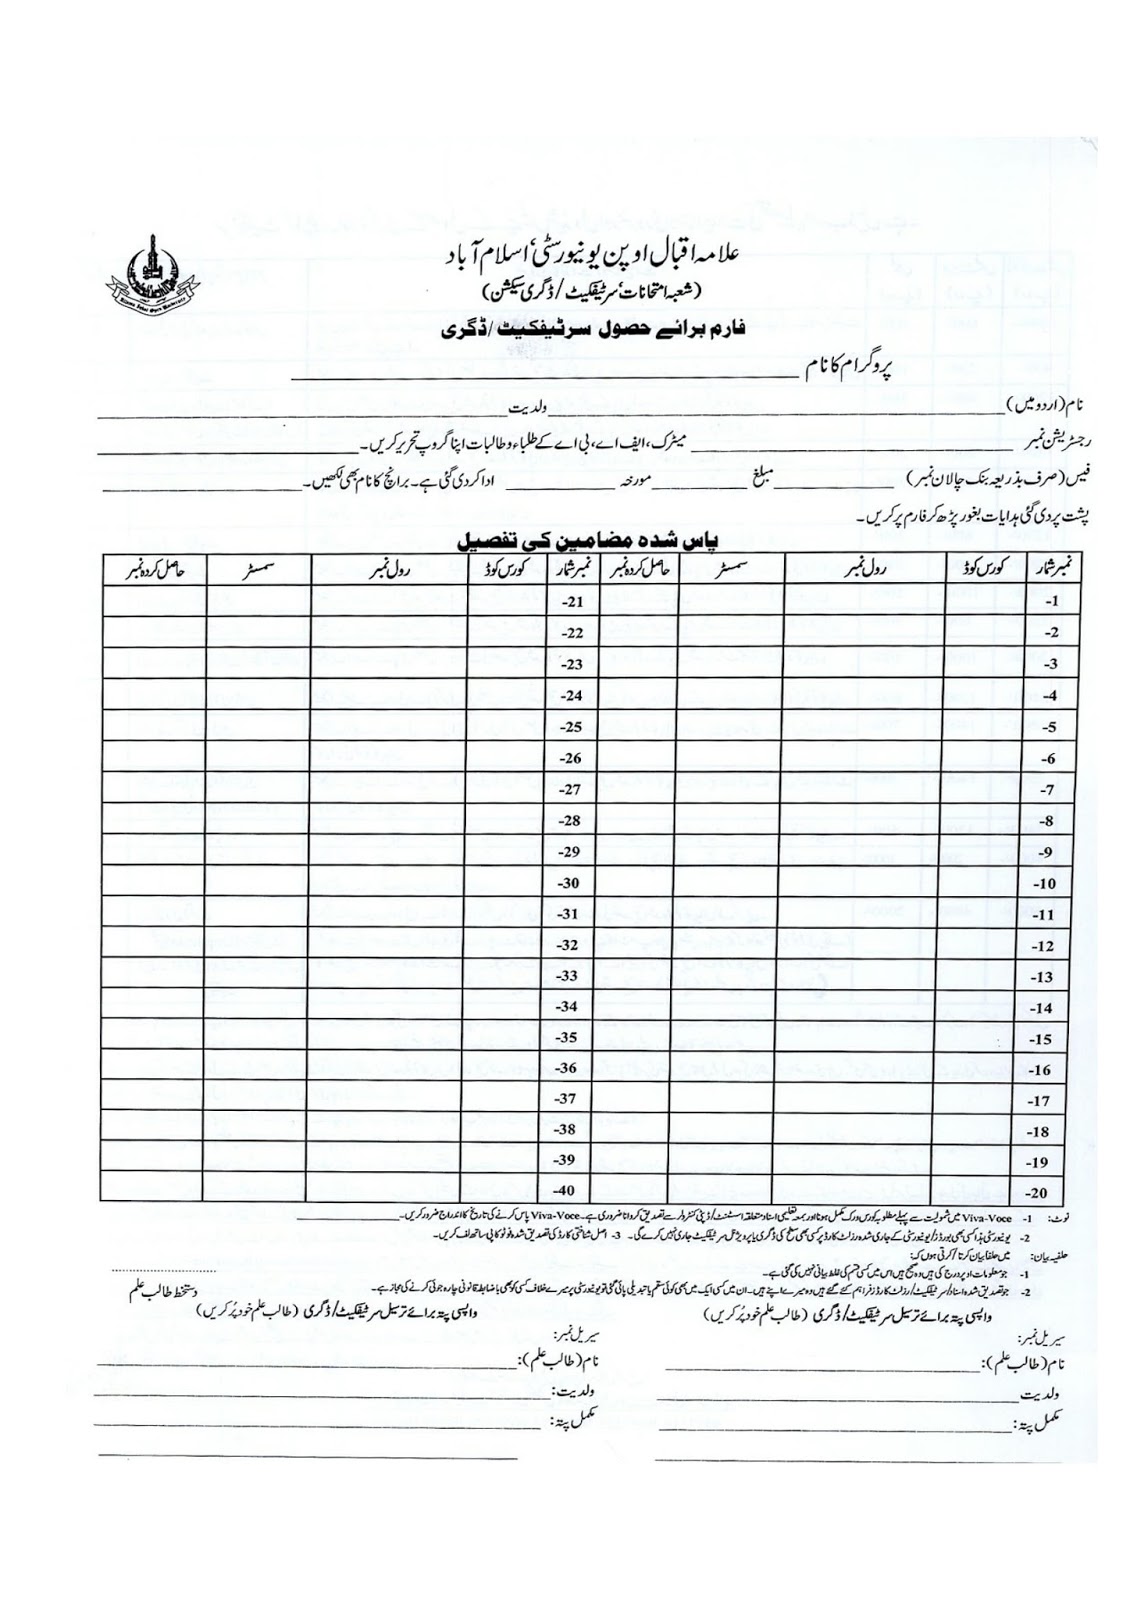 علامہ اقبال اوپن یونیورسٹی، اسلام آباد
(شعبہ امتحانات، سرٹیفکیٹ/ڈگری سیکشن)
فارم برائے حصول سرٹیفکیٹ/ڈگری
پروگرام کا نام
نام (اردو میں) ولدیت
رجسٹریشن نمبر میٹرک، ایف اے، بی اے کے طلباء و طالبات اپنا گروپ تحریر کریں۔
فیس (صرف بذریعہ بنک چالان نمبر) مبلغ مورخہ ادا کر دی گئی ہے۔ برانچ کا نام بھی لکھیں۔
پشت پر دی گئی ہدایات بغور پڑھ کر فارم پر کریں۔
پاس شدہ مضامین کی تفصیل
نمبر شمار کورس کوڈ رول نمبر سمسٹر حاصل کردہ نمبر نمبر شمار کورس کوڈ رول نمبر سمسٹر حاصل کردہ نمبر
-1 -21
-2 -22
-3 -23
-4 -24
-5 -25
-6 -26
-7 -27
-8 -28
-9 -29
-10 -30
-11 -31
-12 -32
-13 -33
-14 -34
-15 -35
-16 -36
-17 -37
-18 -38
-19 -39
-20 -40
نوٹ: 1- Viva-Voce میں شمولیت سے پہلے مطلوبہ کورس ورک مکمل ہونا اور بمعہ تعلیمی اسناد متعلقہ اسسٹنٹ/ڈپٹی کنٹرولر سے تصدیق کروانا ضروری ہے۔ Viva-Voce پاس کرنے کی تاریخ کا اندراج ضرور کریں۔
2- یونیورسٹی ہذا کسی بھی بورڈز/یونیورسٹی کے جاری شدہ رزلٹ کارڈ پر کسی بھی سطح کی ڈگری یا پرویژنل سرٹیفکیٹ جاری نہیں کرے گی۔ 3- اصل شناختی کارڈ کی تصدیق شدہ فوٹو کاپی ساتھ لف کریں۔
حلفیہ بیان: میں حلفاً بیان کرتا/کرتی ہوں کہ:
1- جو معلومات اوپر درج کی ہیں وہ صحیح ہیں اس میں کسی قسم کی غلط بیانی نہیں کی گئی ہے۔
2- جو تصدیق شدہ اسناد/سرٹیفکیٹ/رزلٹ کارڈز فراہم کئے گئے ہیں وہ میرے اپنے ہیں۔ ان میں کسی ایک میں بھی کوئی سقم یا تبدیلی پائی گئی تو یونیورسٹی پر میرے خلاف کسی کو بھی باضابطہ قانونی چارہ جوئی کرنے کی مجاز ہے۔
دستخط طالب علم
واپسی پتہ برائے ترسیل سرٹیفکیٹ/ڈگری (طالب علم خود پُر کریں)
سیریل نمبر:
نام (طالب علم):
ولدیت
مکمل پتہ:
واپسی پتہ برائے ترسیل سرٹیفکیٹ/ڈگری (طالب علم خود پُر کریں)
سیریل نمبر:
نام (طالب علم):
ولدیت:
مکمل پتہ: